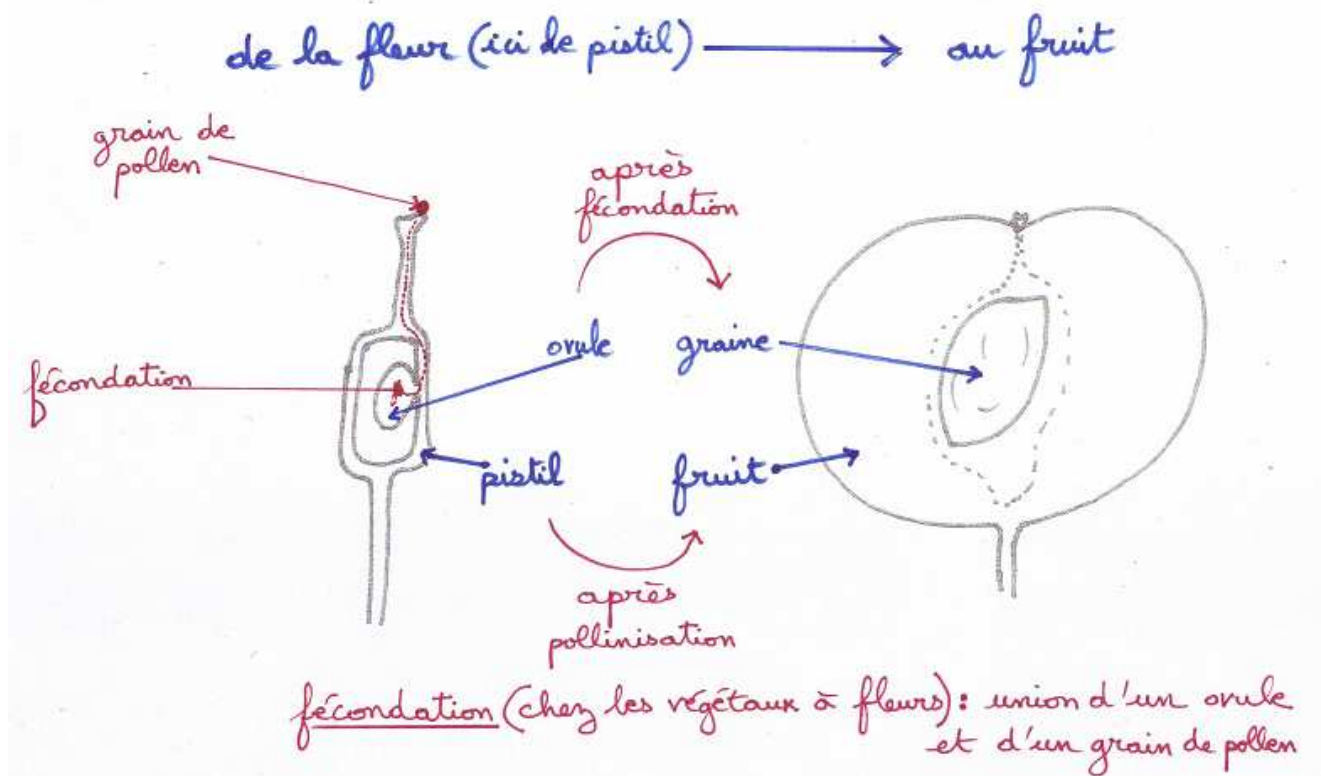 de la fleur (ici de pistil) → au fruit
grain de
pollen
après
fécondation
ovule
graine
fécondation
pistil
fruit
après
pollinisation
fécondation (chez les végétaux à fleurs) : union d'un ovule
et d'un grain de pollen